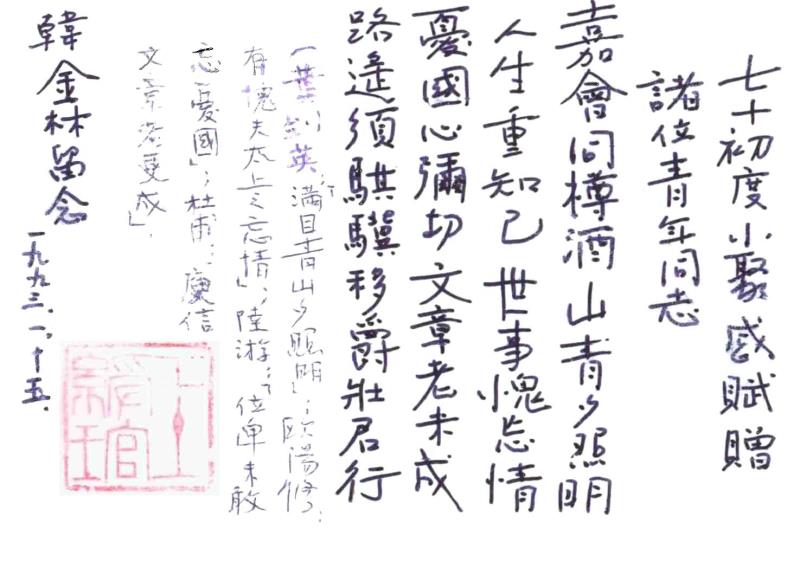 七十初度小聚感賦贈
諸位青年同志
嘉會同樽酒山青夕照明
人生重知己世事愧忘情
憂國心彌切文章老未成
路遙須騏驥移爵壯君行
(葉劍英:「滿目青山夕照明」;歐陽修:
有愧夫太上之忘情」;陸游:「位卑未敢
忘憂國」;杜甫:庾信
文章老更成」.
韓金林留念
一九九三.一.十五.